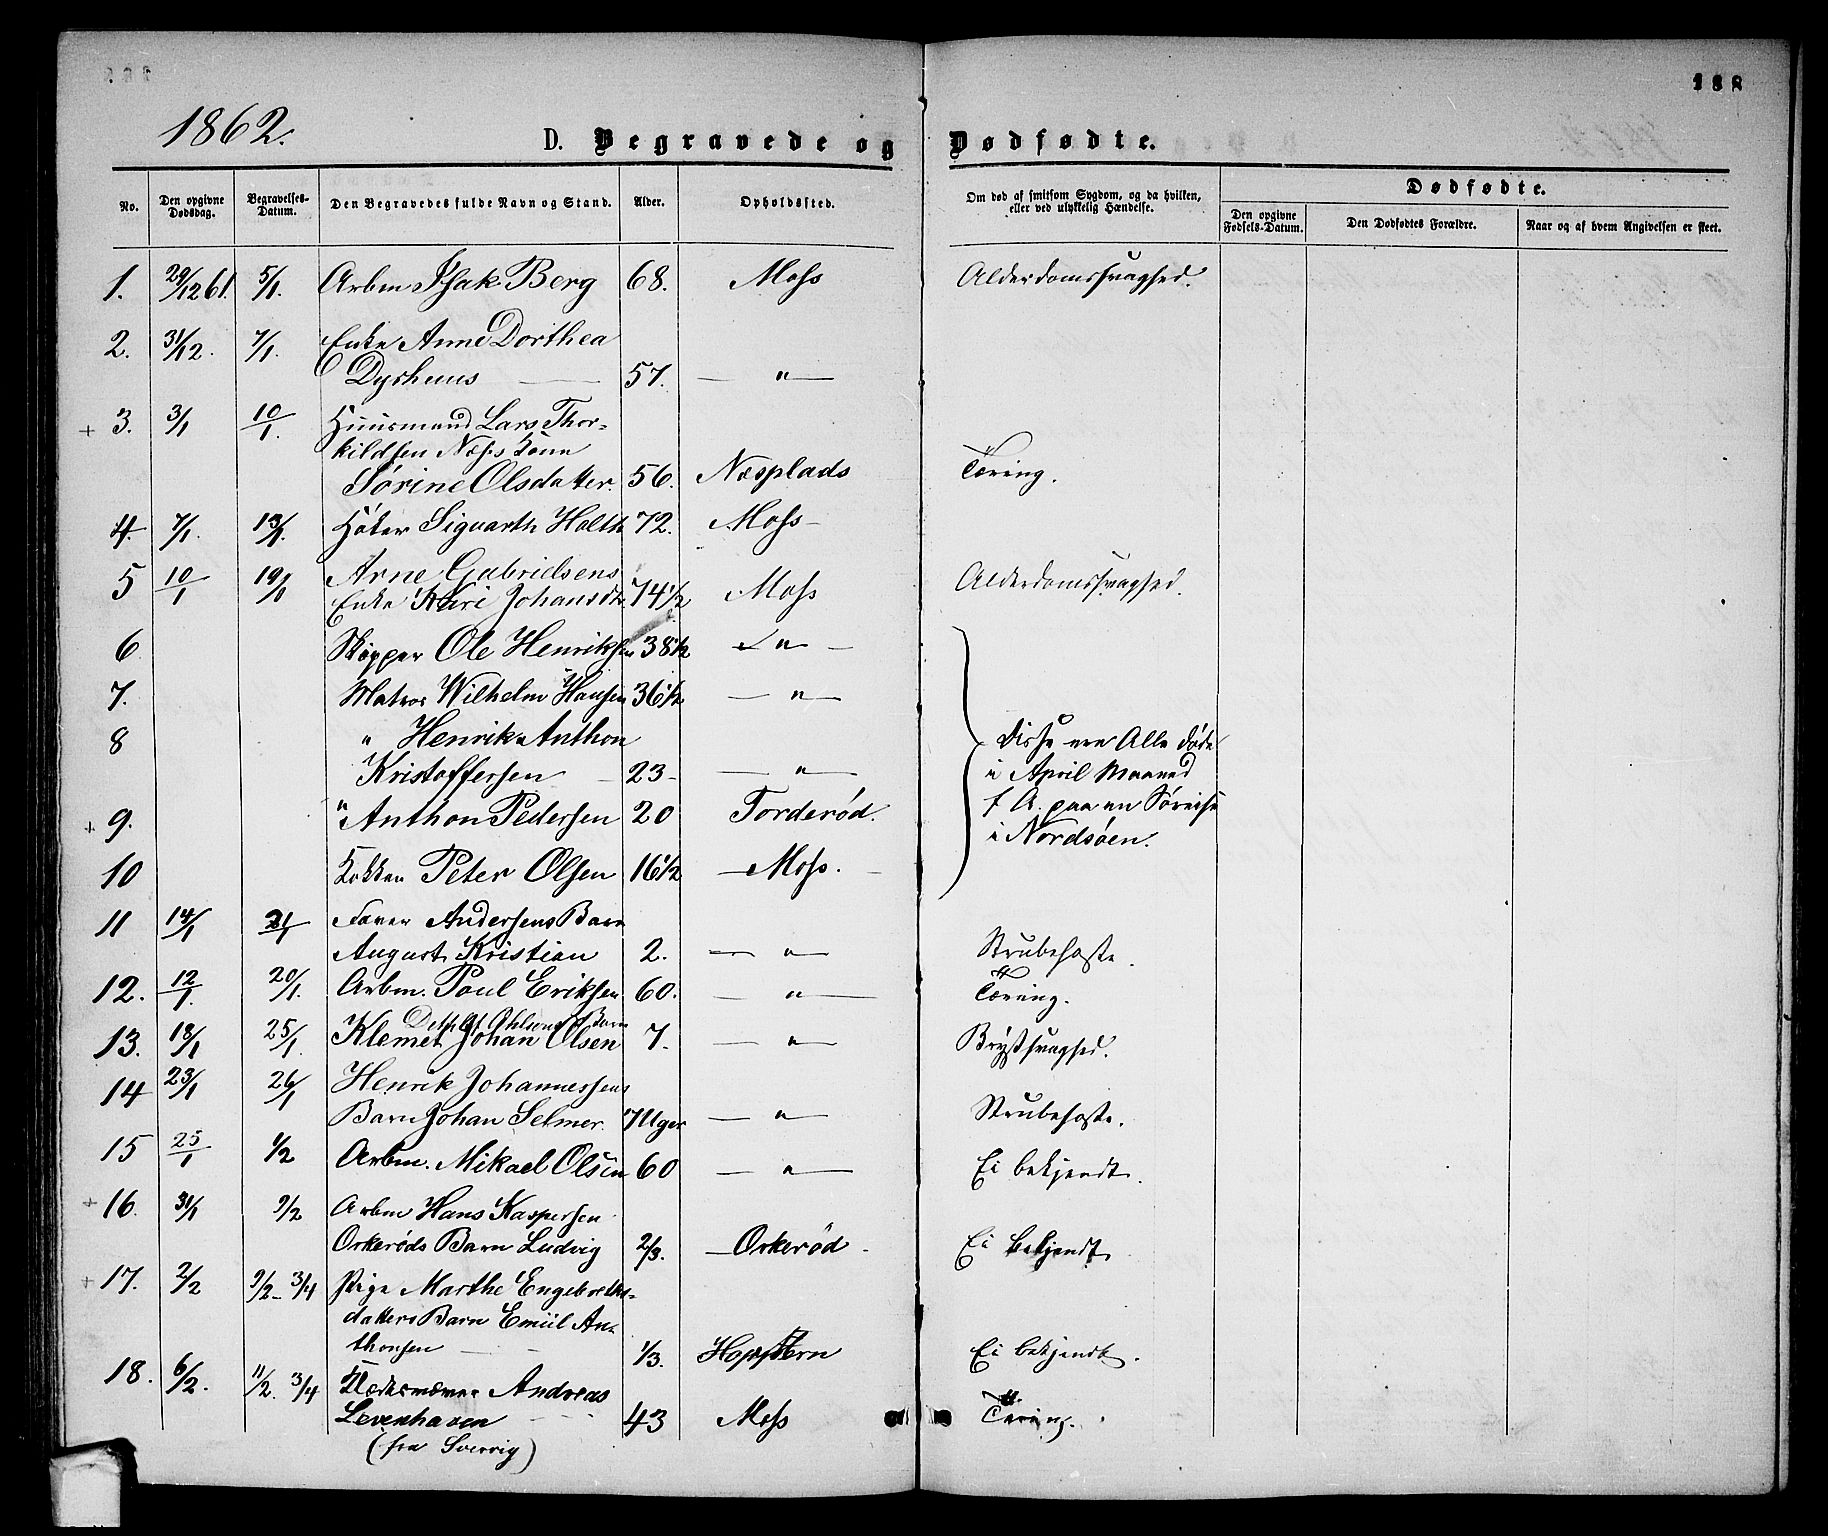 188
1862.
D. Begravede og Dødfødte.
No.
Den opgivne Dødsdag.
Begravelses-Datum.
Den Begravedes fulde Navn og Stand.
Alder.
Opholdssted.
Om død af smitsom Sygdom, og da hvilken, eller ved ulykkelig Hændelse.
Dødfødte.
Den opgivne Fødsels-Datum.
Den Dødfødtes Forældre.
Naar og af hvem Angivelsen er skeet.
1. 29/12 61. 5/1. Arbm Isak Berg 68. Moss Alderdomssvaghed.
2. 31/12. 7/1. Enke Anne Dorthea
Dyrhuus — 57. — " —
+ 3. 3/1 10/1. Huusmand Lars Thor-
kildsen Næss Kone
Sørine Olsdatter. 56. Næsplads Tæring.
4. 7/1. 13/1. Høker Siguarth Holth 72. Moss —
5 10/1 19/1 Arne Gabrielsens
Enke Kari Johansdtr 74 1/2 Moss Alderdomssvaghed.
6 Skipper Ole Henriksen 38 1/2 — " —
7. Matros Wilhelm Hansen 36 1/2 — " —
8 " Henrik Anthon
Kristoffersen — 23 — — " —
Disse ere Alle døde
i April Maaned
f. A. paa en Søreise
i Nordsøen.
+ 9. " Anthon Pedersen 20 Torderød.
10 Kokken Peter Olsen 16 1/2 — Moss. —
11 14/1 21/1 Farver Andersens Barn
August Kristian 2. — " — Strubehoste.
12. 12/1. 20/1. Arbm. Poul Eriksen 60. — " — Tæring.
13. 18/1 25/1. Ohlsens Barn
Klemet Johan Olsen 7. — " — Brystsvaghed.
14 23/1 26/1 Henrik Johannessens
Barn Johan Selmer. 7 Uger — " — Strubehoste.
15 25/1 1/2 Arbm. Mikael Olsen 60 — " — Ei bekjendt.
+ 16. 31/1 9/2 Arbm Hans Kaspersen
Orkerøds Barn Ludvig 2/3. — Orkerød. Ei bekjendt
+ 17. 2/2 9/2 — 3/4 Pige Marthe Engebreths-
datters Barn Emiil An-
thonsen — 1/3. Ei bekjendt.
18. 6/2. 11/2. 3/4 Andreas
Levenhaven — 43 Moss Tæring.
(fra Sverrig)